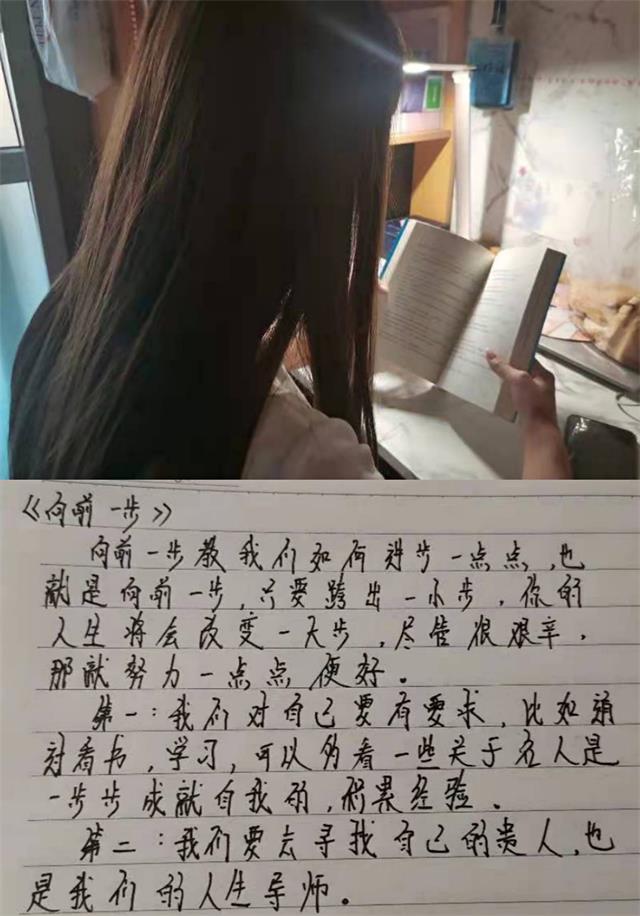 《向前一步》
向前一步教我们如何进步一点点,也
就是向前一步,只要跨出一小步,你的
人生将会改变一大步,尽管很艰辛,
那就努力一点点便好。
第一:我们对自己要有要求,比如
看书,学习,可以多看一些关于名人是
一步步成就自我的,积累经验。
第二:我们要去寻找自己的贵人,也
是我们的人生导师。